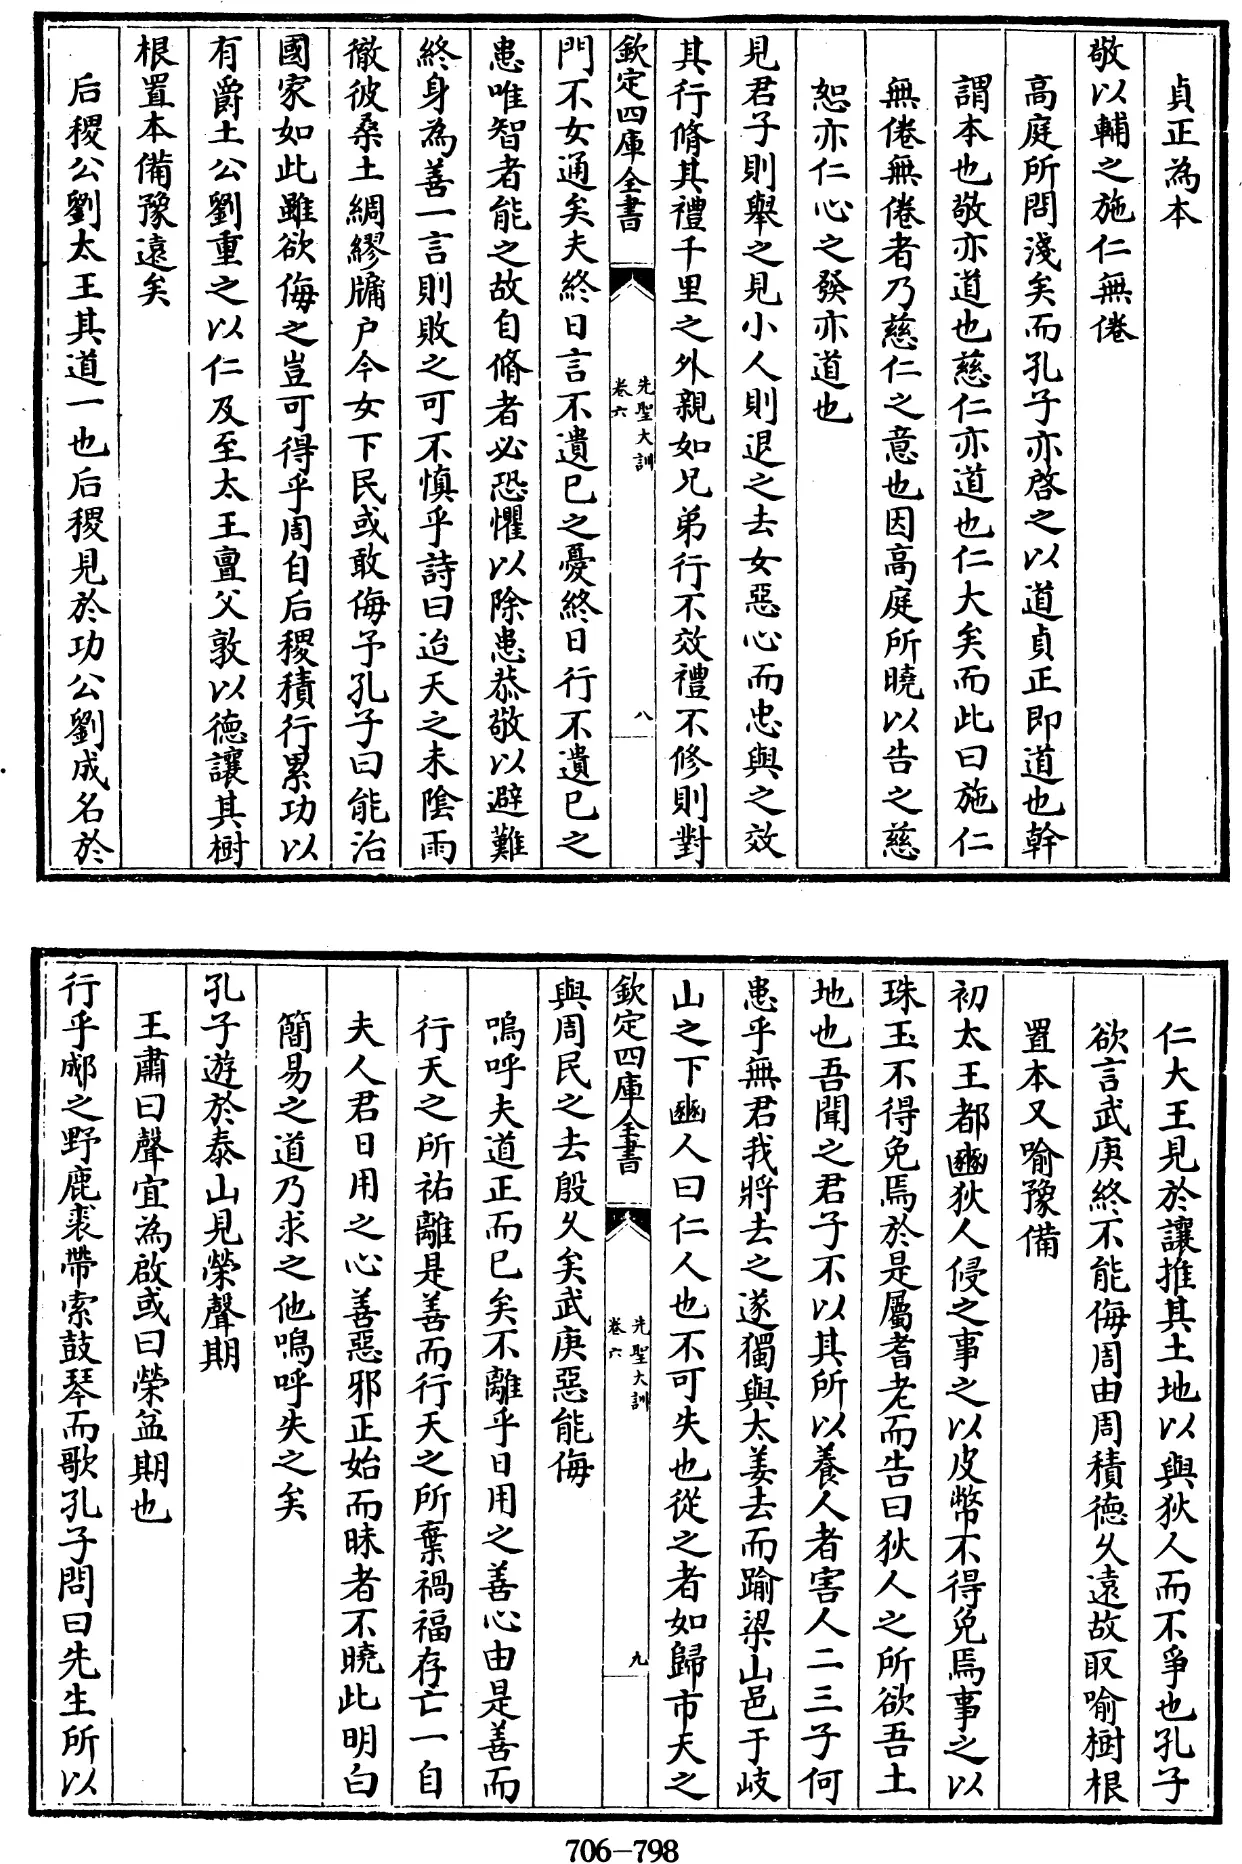 貞正為本
敬以輔之施仁無倦
高庭所問淺矣而孔子亦啓之以道貞正即道也幹
謂本也敬亦道也慈仁亦道也仁大矣而此曰施仁
無倦無倦者乃慈仁之意也因高庭所曉以告之慈
恕亦仁心之發亦道也
見君子則舉之見小人則退之去女惡心而忠與之效
其行脩其禮千里之外親如兄弟行不效禮不修則對
欽定四庫全書
先聖大訓
卷六
八
門不女通矣夫終日言不遺已之憂終日行不遺已之
患唯智者能之故自脩者必恐懼以除患恭敬以避難
終身為善一言則敗之可不慎乎詩曰迨天之未陰雨
徹彼桑土綢繆牖户今女下民或敢侮予孔子曰能治
國家如此雖欲侮之豈可得乎周自后稷積行累功以
有爵土公劉重之以仁及至太王亶父敦以德讓其樹
根置本備豫遠矣
后稷公劉太王其道一也后稷見於功公劉成名於
仁大王見於讓推其土地以與狄人而不爭也孔子
欲言武庚終不能侮周由周積德久遠故取喻樹根
置本又喻豫備
初太王都豳狄人侵之事之以皮幣不得免焉事之以
珠玉不得免焉於是屬耆老而告曰狄人之所欲吾土
地也吾聞之君子不以其所以養人者害人二三子何
患乎無君我將去之遂獨與太姜去而踰梁山邑于岐
山之下豳人曰仁人也不可失也從之者如歸市天之
欽定四庫全書
先聖大訓
卷六
九
與周民之去殷久矣武庚惡能侮
嗚呼夫道正而已矣不離乎日用之善心由是善而
行天之所祐離是善而行天之所棄禍福存亡一自
夫人君日用之心善惡邪正始而昧者不曉此明白
簡易之道乃求之他嗚呼失之矣
孔子遊於泰山見榮聲期
王肅曰聲宜為啟或曰榮益期也
行乎郕之野鹿裘帶索鼓琴而歌孔子問曰先生所以
706-798